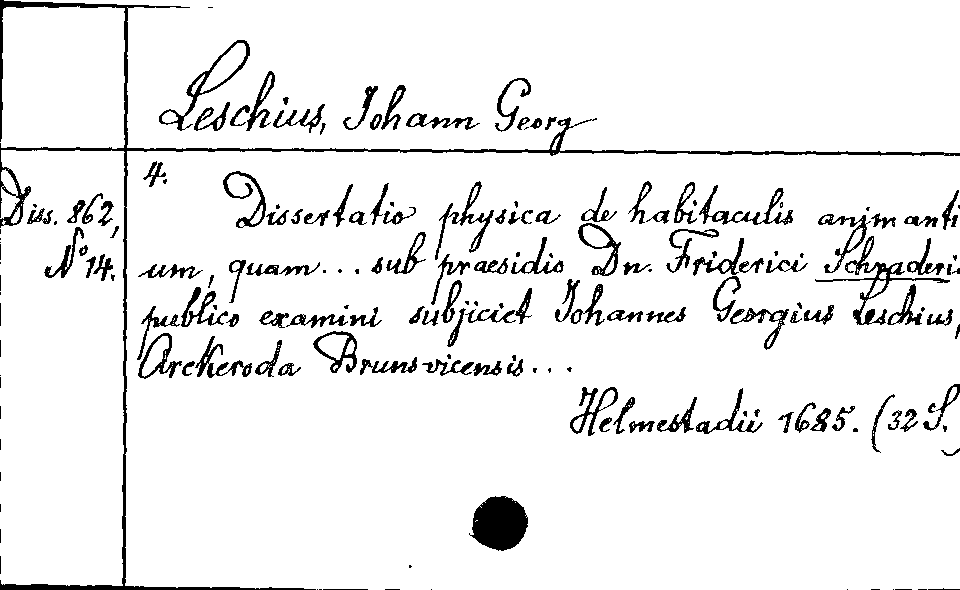 Leschius, Johann Georg
4.
Diss. 862,
No 14.
Dissertatio physica de habitaculis animanti
um, quam... sub praesidio Dn. Friderici Schraderi
publico examini subjiciet Johannes Georgius Leschius,
Arckeroda Brunsvicensis...
Helmestadii 1685. (32 S.)